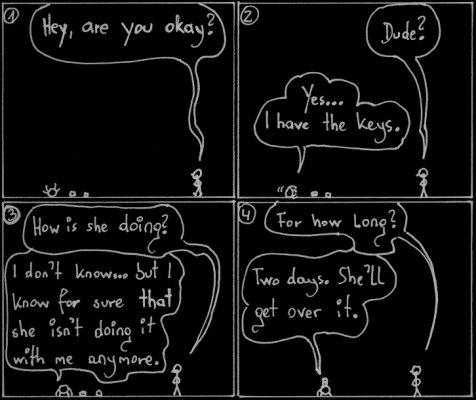 1
Hey, are you okay?
2
Dude?
Yes...
I have the keys.
3
How is she doing?
I don't know... but I
know for sure that
she isn't doing it
with me anymore.
4
For how long?
Two days. She'll
get over it.